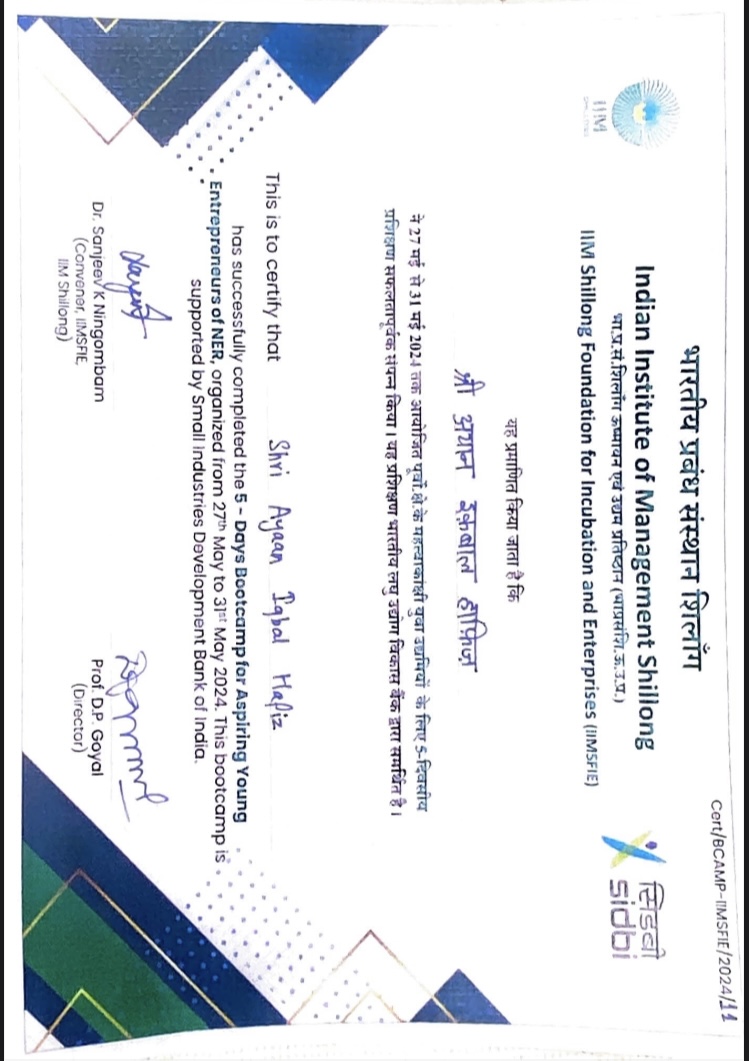 Cert/BCAMP-IIMSFIE/2024/11
भारतीय प्रबंध संस्थान शिलाँग
Indian Institute of Management Shillong
भा.प्र.सं.शिलाँग ऊष्मायन एवं उद्यम प्रतिष्ठान (भाप्रसंशि.ऊ.उ.प्र.)
IIM Shillong Foundation for Incubation and Enterprises (IIMSFIE)
IIM
SHILLONG
सिडबी
sidbi
यह प्रमाणित किया जाता है कि
श्री अयान इकबाल हाफिज
ने 27 मई से 31 मई 2024 तक आयोजित पूर्वो.क्षे.के महत्वाकांक्षी युवा उद्यमियों के लिए 5-दिवसीय
प्रशिक्षण सफलतापूर्वक संपन्न किया। यह प्रशिक्षण भारतीय लघु उद्योग विकास बैंक द्वारा समर्थित है।
This is to certify that Shri Ayaan Iqbal Hafiz
has successfully completed the 5 - Days Bootcamp for Aspiring Young
Entrepreneurs of NER, organized from 27th May to 31st May 2024. This bootcamp is
supported by Small Industries Development Bank of India.
Dr. Sanjeev K Ningombam
(Convener, IIMSFIE,
IIM Shillong)
Prof. D.P. Goyal
(Director)